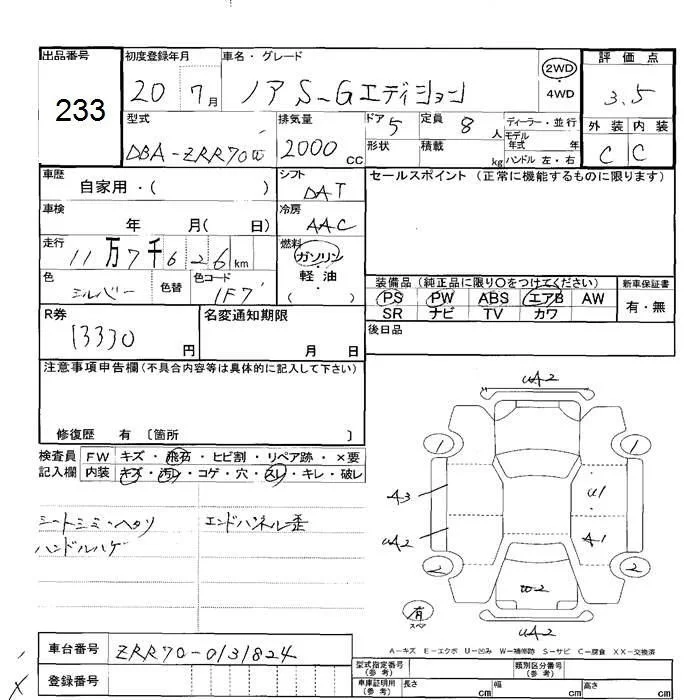 出品番号 初度登録年月 車名・グレード 2WD ・ 4WD 評価点
233 20 7月 ノア S-Gエディション 3.5
型式 排気量 ドア 5 定員 8人 ディーラー・並行 外装 内装
DBA-ZRR70W 2000cc 形状 積載 kg モデル年式 年 ハンドル 左・右 C C
車歴 自家用・( ) シフト DAT セールスポイント (正常に機能するものに限ります)
車検 年 月( 日) 冷房 AAC
走行 11万7千626km 燃料 ガソリン・軽油 ( )
色 シルバー 色替 色コード 1F7
装備品 (純正品に限り○をつけてください) 新車保証書
PS PW ABS エアB AW 有・無
SR ナビ TV カワ
R券 13330円 名変通知期限 月 日 後日品
注意事項申告欄 (不具合内容等は具体的に記入して下さい)
修復歴 有 〔箇所 〕
検査員 FW キズ・飛石・ヒビ割・リペア跡・×要
記入欄 内装 キズ・汚レ・コゲ・穴・スレ・キレ・破レ
シートシミ・ヘタリ エンドパネル歪
ハンドルハゲ
UA2
1 1
A3 U1
UA2 A1
2 2
W2
有
スペア
UA2
A-キズ E-エクボ U-凹み W-補修跡 S-サビ C-腐食 XX-交換済
車台番号 ZRR70-0131824
型式指定番号 (参考) 類別区分番号 (参考)
登録番号
車庫証明用 (参考) 長さ cm 幅 cm 高さ cm